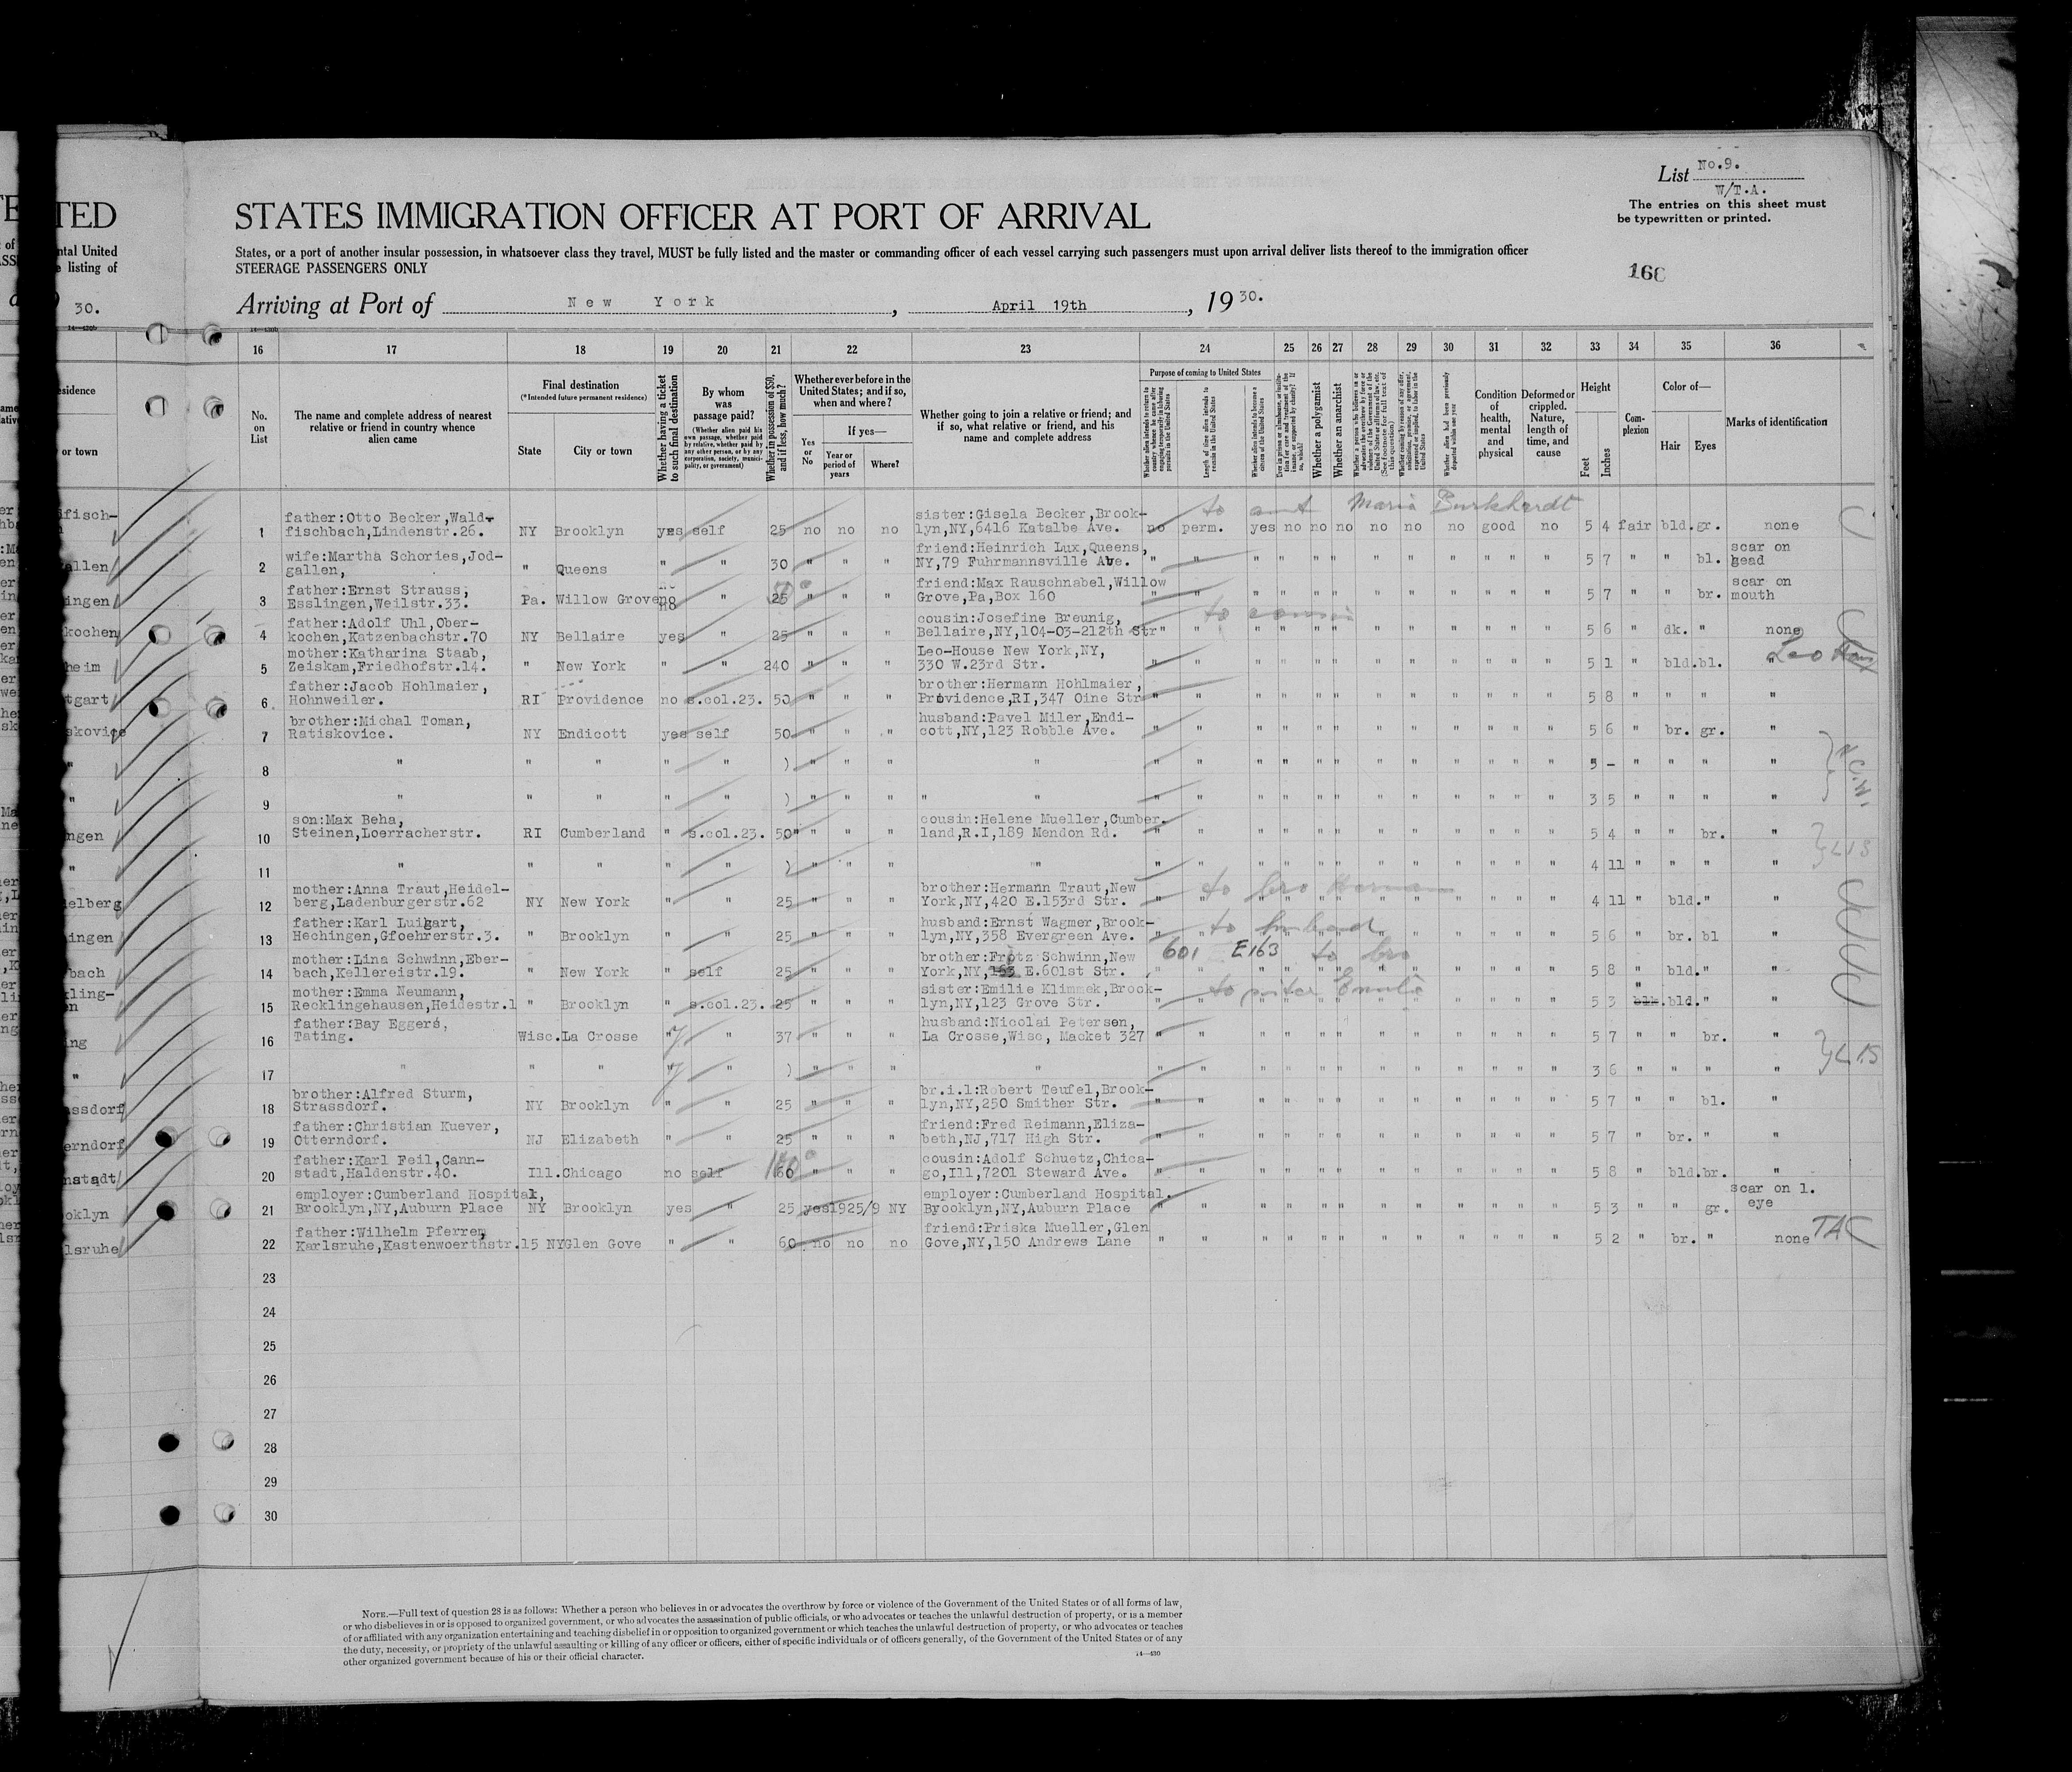 List No.9.
W/T.A.
The entries on this sheet must
be typewritten or printed.
166
TED
STATES IMMIGRATION OFFICER AT PORT OF ARRIVAL
States, or a port of another insular possession, in whatsoever class they travel, MUST be fully listed and the master or commanding officer of each vessel carrying such passengers must upon arrival deliver lists thereof to the immigration officer
STEERAGE PASSENGERS ONLY
Arriving at Port of New York, April 19th, 1930.
16 17 18 19 20 21 22 23 24 25 26 27 28 29 30 31 32 33 34 35 36
No. on List
The name and complete address of nearest relative or friend in country whence alien came
Final destination
(*Intended future permanent residence)
State
City or town
Whether having a ticket to such final destination
By whom was passage paid?
(Whether alien paid his own passage, whether paid by relative, whether paid by any other person, or by any corporation, society, municipality, or government)
Whether in possession of $50, and if less, how much?
Whether ever before in the United States; and if so, when and where?
Yes or No
If yes—
Year or period of years
Where?
Whether going to join a relative or friend; and if so, what relative or friend, and his name and complete address
Purpose of coming to United States
Whether a polygamist
Whether an anarchist
Condition of health, mental and physical
Deformed or crippled. Nature, length of time, and cause
Height
Feet
Inches
Complexion
Color of—
Hair
Eyes
Marks of identification
to aunt Maria Burkhardt
1 father:Otto Becker,Wald- sister:Gisela Becker,Brook-
fischbach,Lindenstr.26. NY Brooklyn yes self 25 no no no lyn,NY,6416 Katalbe Ave. no perm. yes no no no no no no good no 5 4 fair bld. gr. none
2 wife:Martha Schories,Jod- friend:Heinrich Lux,Queens, scar on
gallen, " Queens " " 30 " " " NY,79 Fuhrmannsville Ave. " " " " " " " " " " " " 5 7 " " bl. gead
3 father:Ernst Strauss, friend:Max Rauschnabel,Willow scar on
Esslingen,Weilstr.33. Pa. Willow Grove no " 25 " " " Grove,Pa,Box 160 " " " " " " " " " " " " 5 7 " " br. mouth
to cousin
4 father:Adolf Uhl,Ober- cousin:Josefine Breunig,
kochen,Katzenbachstr.70 NY Bellaire yes " 25 " " " Bellaire,NY,104-03-212th Str " " " " " " " " " " " " 5 6 " dk. " none
5 mother:Katharina Staab, Leo-House New York,NY,
Zeiskam,Friedhofstr.14. " New York " " 240 " " " 330 W.23rd Str. " " " " " " " " " " " " 5 1 " bld. bl. "
6 father:Jacob Hohlmaier, brother:Hermann Hohlmaier,
Hohnweiler. RI Providence no s.col.23. 50 " " " Providence,RI,347 Oine Str " " " " " " " " " " " " 5 8 " " " "
7 brother:Michal Toman, husband:Pavel Miler,Endi-
Ratiskovice. NY Endicott yes self 50 " " " cott,NY,123 Robble Ave. " " " " " " " " " " " " 5 6 " br. gr. "
8 " " " " " ) " " " " " " " " " " " " " " " " " 5 - " " " "
9 " " " " " ) " " " " " " " " " " " " " " " " " " 3 5 " " " "
10 son:Max Beha, cousin:Helene Mueller,Cumber-
Steinen,Loerracherstr. RI Cumberland " s.col.23. 50" " " " land,R.I,189 Mendon Rd. " " " " " " " " " " " " 5 4 " " br. "
11 " " " " " ) " " " " " " " " " " " " " " " " 4 11 " " " "
to bro Herman
12 mother:Anna Traut,Heidel- brother:Hermann Traut,New
berg,Ladenburgerstr.62 NY New York " " 25 " " " York,NY,420 E.153rd Str. " " " " " " " " " " " " 4 11 " bld. " "
to husband
13 father:Karl Luigart, husband:Ernst Wagmer,Brook-
Hechingen,Gfoehrerstr.3. " Brooklyn " " 25 " " " lyn,NY,358 Evergreen Ave. " " " " " " " " " " " " 5 6 " br. bl "
601 E163 to bro
14 mother:Lina Schwinn,Eber- brother:Frotz Schwinn,New
bach,Kellereistr.19. " New York " self 25 " " " York,NY,163 E.601st Str. " " " " " " " " " " " " 5 8 " bld. " "
15 mother:Emma Neumann, sister:Emilie Klimmek,Brook-
Recklingehausen,Heidestr.1 " Brooklyn " s.col.23. 25 " " " lyn,NY,123 Grove Str. " " " " " " " " " " " " 5 3 blk. bld. " "
16 father:Bay Eggers, husband:Nicolai Petersen,
Tating. Wisc. La Crosse " " 37 " " " La Crosse,Wisc, Macket 327 " " " " " " " " " " " " 5 7 " " br. "
17 " " " " " ) " " " " " " " " " " " " " " " " 3 6 " " " "
18 brother:Alfred Sturm, br.i.l:Robert Teufel,Brook-
Strassdorf. NY Brooklyn " " 25 " " " lyn,NY,250 Smither Str. " " " " " " " " " " " " 5 7 " " bl. "
19 father:Christian Kuever, friend:Fred Reimann,Eliza-
Otterndorf. NJ Elizabeth " " 25 " " " beth,NJ,717 High Str. " " " " " " " " " " " " 5 7 " br. " "
20 father:Karl Feil,Cann- cousin:Adolf Schuetz,Chica-
stadt,Haldenstr.40. Ill. Chicago no self 60 " " " go,Ill,7201 Steward Ave. " " " " " " " " " " " " 5 8 " bld. br. "
21 employer:Cumberland Hospital, employer:Cumberland Hospital, scar on l.
Brooklyn,NY,Auburn Place NY Brooklyn yes " 25 yes 1925/9 NY Brooklyn,NY,Auburn Place " " " " " " " " " " " " 5 3 " " gr. eye
22 father:Wilhelm Pferrem friend:Priska Mueller,Glen
Karlsruhe,Kastenwoerthstr.15 NY Glen Gove " " 60 no no no Gove,NY,150 Andrews Lane " " " " " " " " " " " " 5 2 " br. " none TAC
23
24
25
26
27
28
29
30
NOTE.—Full text of question 28 is as follows: Whether a person who believes in or advocates the overthrow by force or violence of the Government of the United States or of all forms of law,
or who disbelieves in or is opposed to organized government, or who advocates the assassination of public officials, or who advocates or teaches the unlawful destruction of property, or is a member
of or affiliated with any organization entertaining and teaching disbelief in or opposition to organized government or which teaches the unlawful destruction of property, or who advocates or teaches
the duty, necessity, or propriety of the unlawful assaulting or killing of any officer or officers, either of specific individuals or of officers generally, of the Government of the United States or of any
other organized government because of his or their official character.
14—430